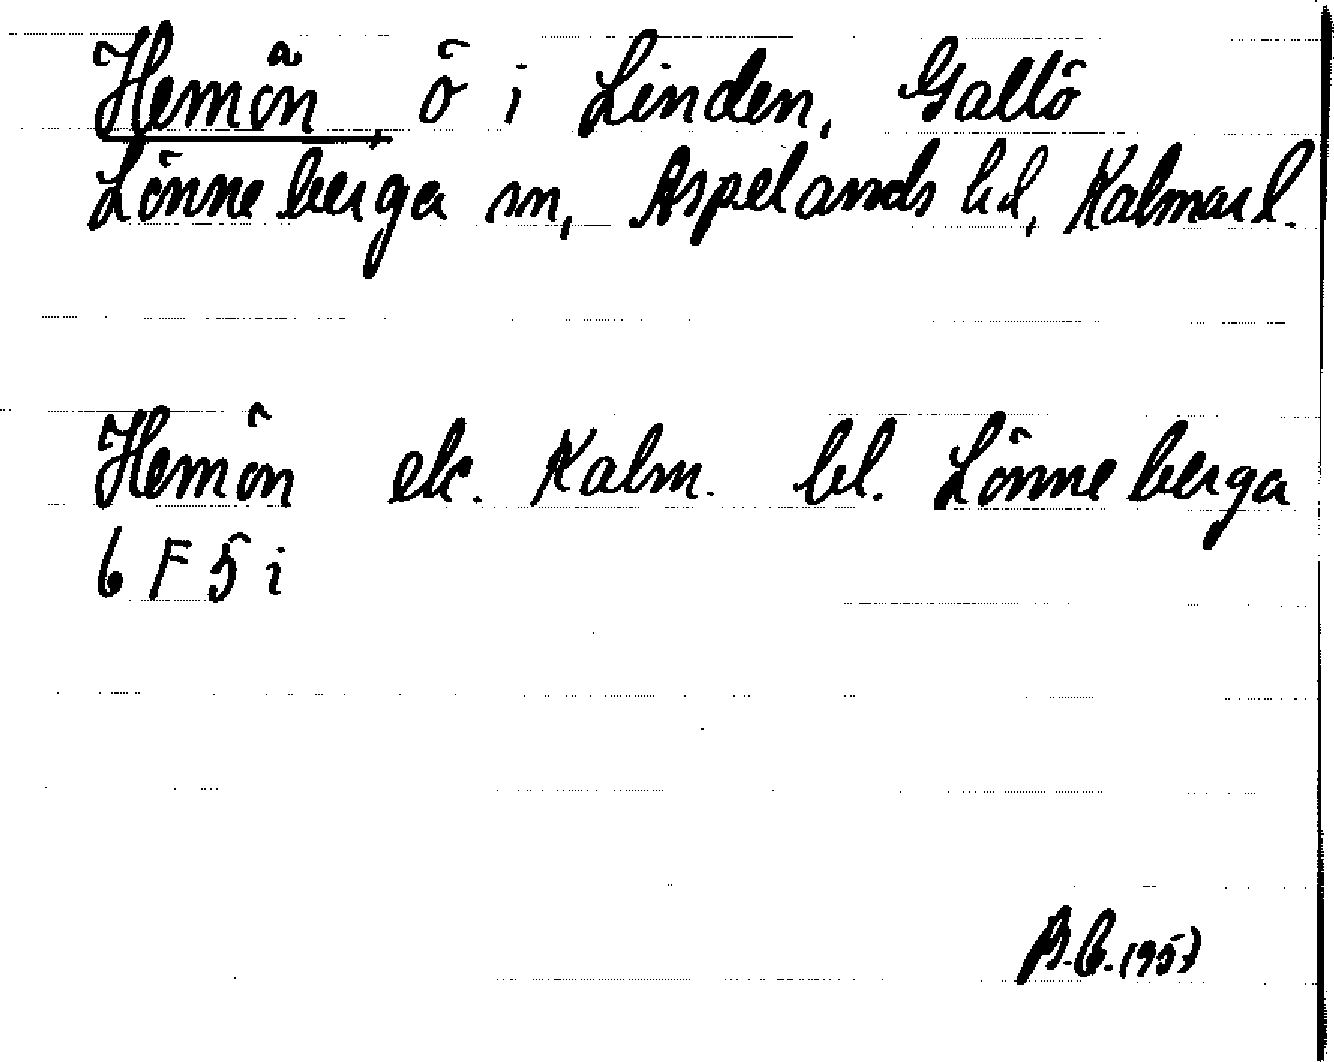 Hemön, ö i Linden, Galtö
Lönneberga sn, Aspelands hd, Kalmar l.
Hemön ek. Kalm. bl. Lönneberga
6 F 5 i